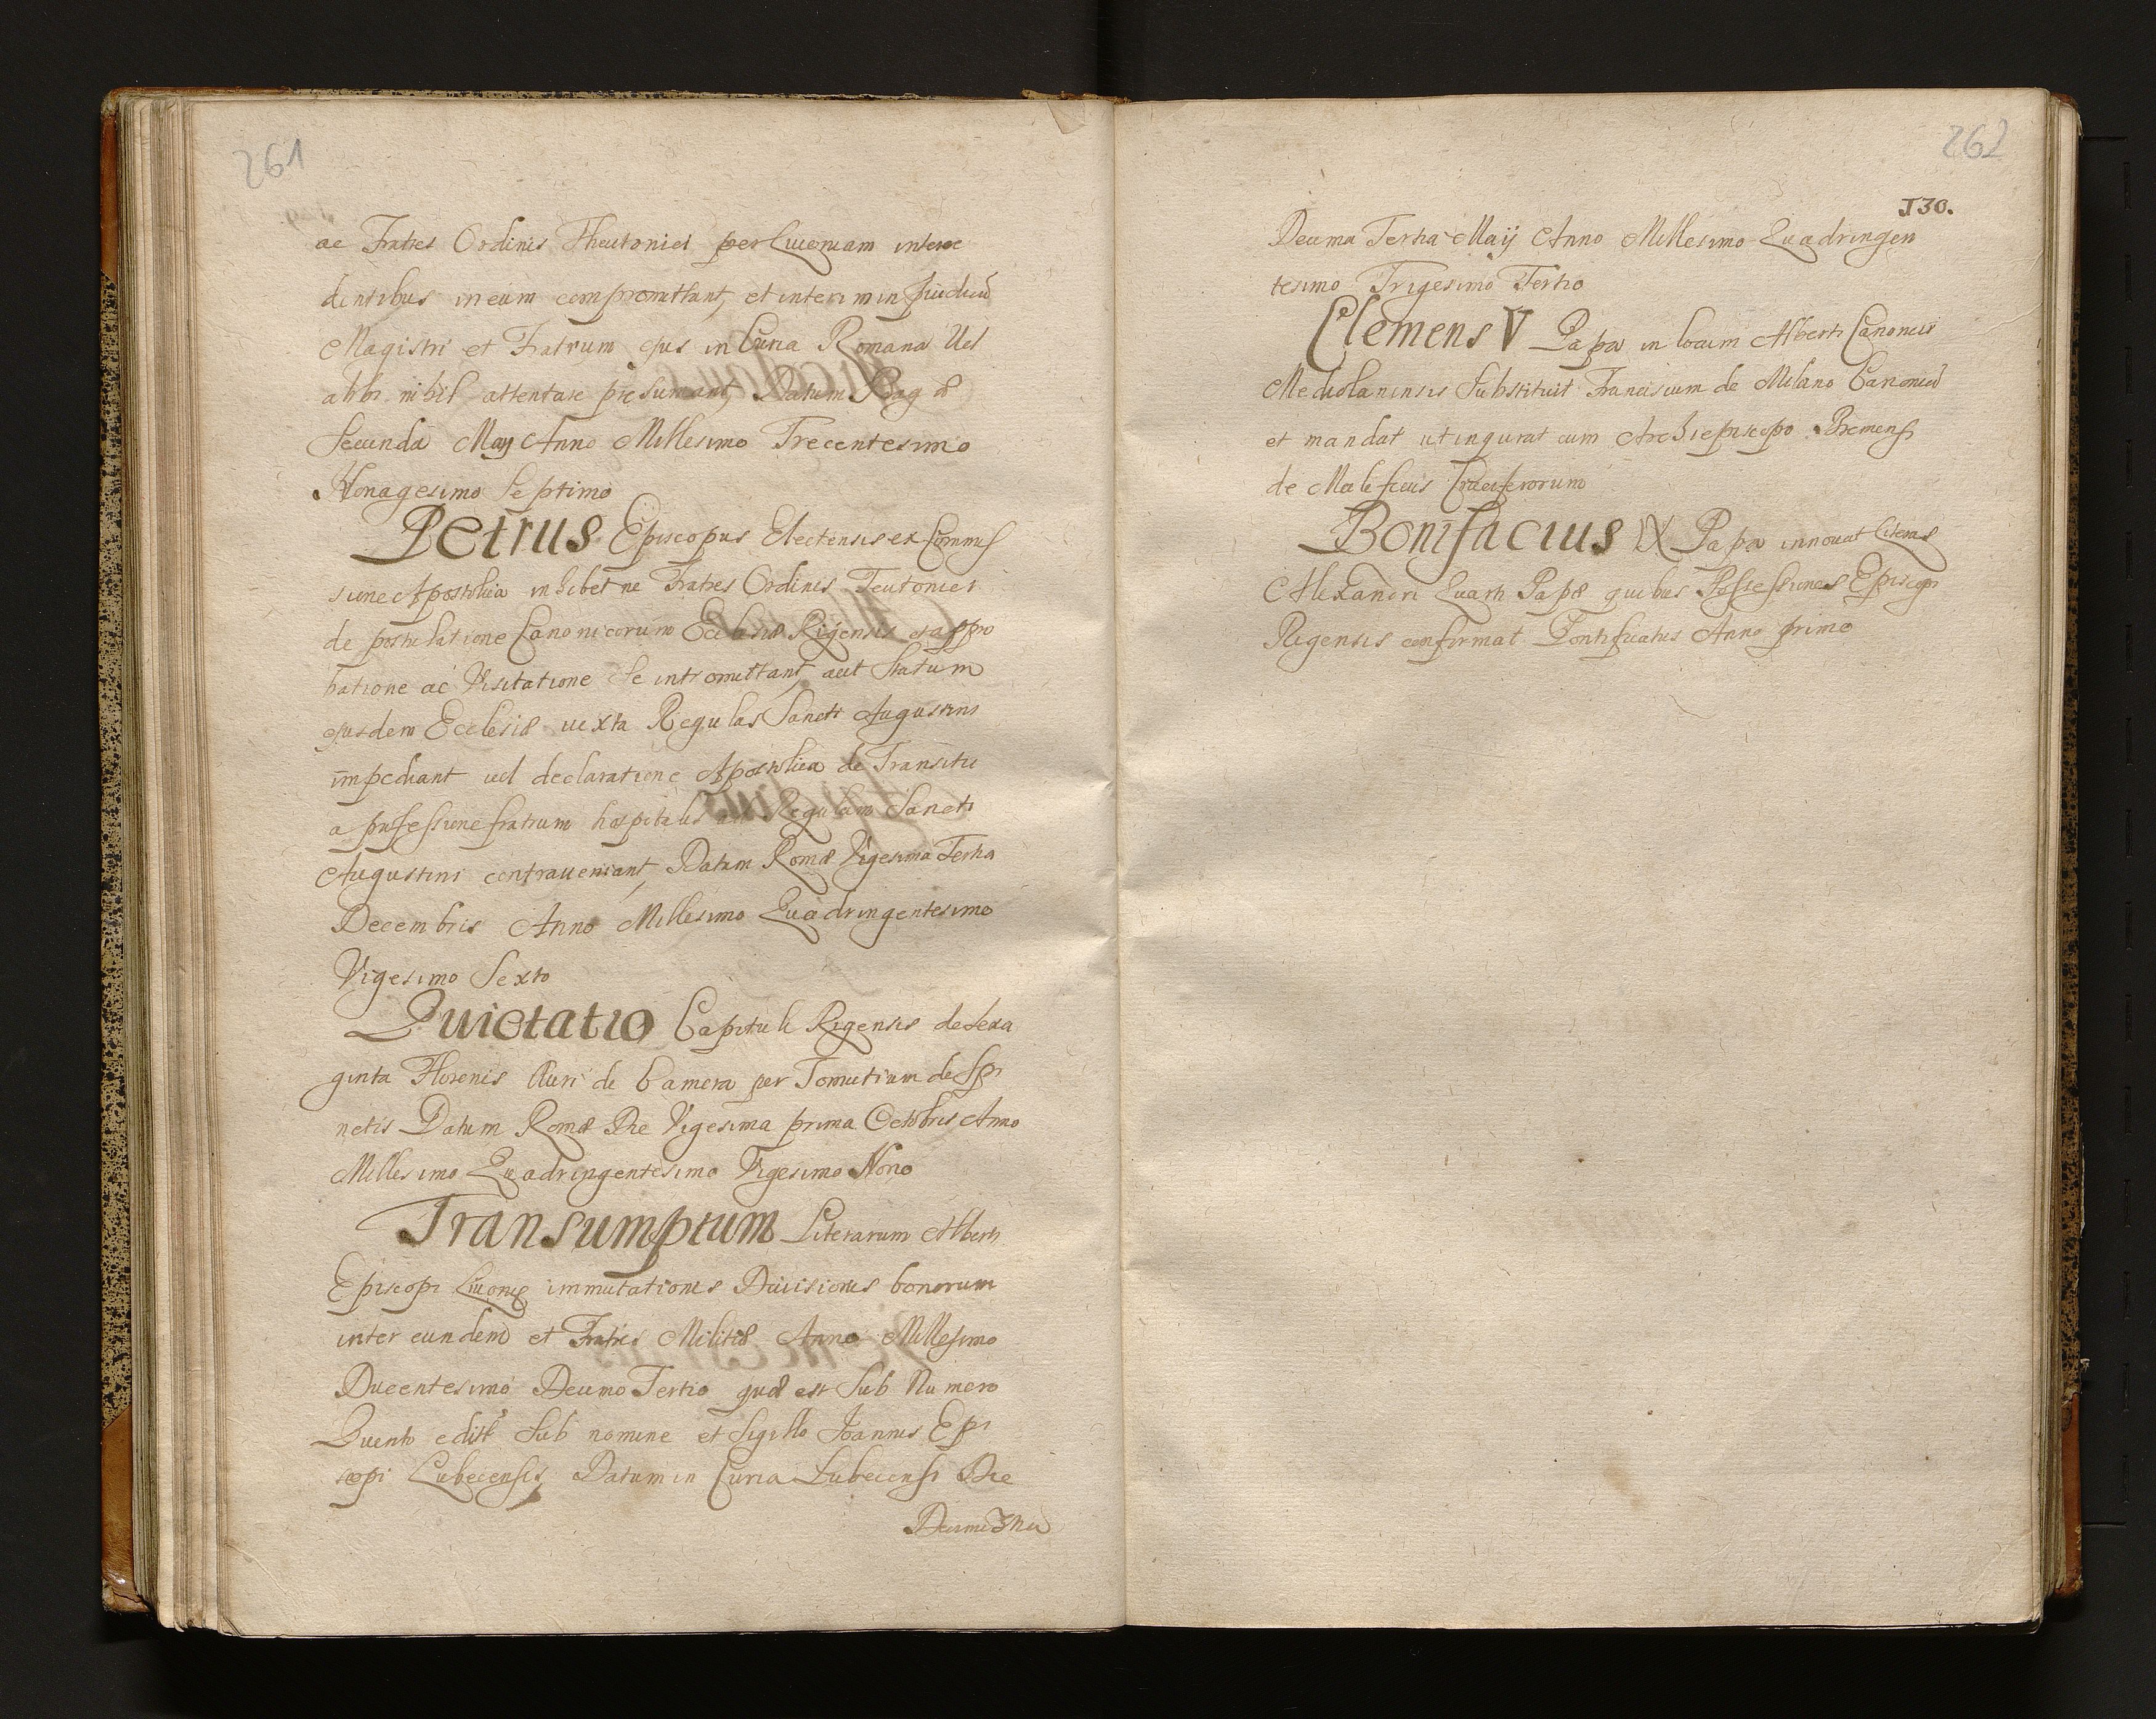 261
ac Fratres Ordinis Theutonici per Livoniam interce
dentibus in eum compromittant, et interim in Praeiudiciũ
Magistri et Fratrum ejus in Curia Romana Vel
alibi nihil attentare praesumant, Datum Prag æ
Secunda Maij Anno Millesimo Trecentesimo
Nonagesimo Septimo
Petrus Episcopus Electensis ex Commis
sione Apostolica inhibet ne Fratres Ordinis Teutonici
de postulatione Canonicorum Ecclesiæ Rigensis et appro
batione ac Visitatione se intromittant, aut Statum
ejusdem Ecclesiæ iuxta Regulas Sancti Augustini
impediant vel declaratione Apostolica de Transitu
a professione fratrum hospitalis ad Regulam Sancti
Augustini contraveniant, Datum Romæ Vigesima Tertia
Decembris Anno Millesimo Quadringentesimo
Vigesimo Sexto
Quictatio Capituli Rigensis de Sexa
ginta Florenis Auri de Camera per Tomutium de Spi
netis Datum Romæ Die Vigesima prima Octobris Anno
Millesimo Quadringentesimo Vigesimo Nono
Transumptum Literarum Alberti
Episcopi Livoniæ immutationis Divisionis bonorum
inter eundem et Fratres Militiæ Anno Millesimo
Ducentesimo Decimo Tertio quæ est Sub Numero
Quinto edit Sub nomine et Sigillo Ioannis Epi
scopi Lubecensis, Datum in Curia Lubecensi Die
Decima Tertia
262
130.
Decima Tertia Maij Anno Millesimo Quadringen
tesimo Trigesimo Tertio
Clemens V Papa in locum Alberti Canonicis
Mediolanensis Substituit Franciscum de Milano Canonicũ
et mandat ut inquirat cum Archiepiscopo Bremensi
de Maleficiis Cruciferorum
Bonifacius IX Papa innovat Literas
Alexandri Quarti Papæ quibus Possessiones Episcopi
Rigensis confirmat Pontificatus Anno primo